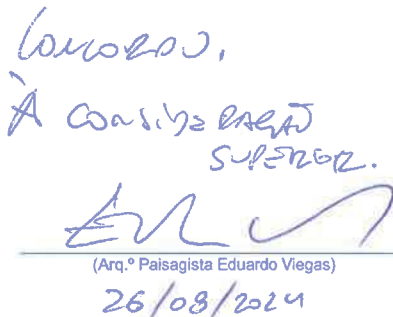 Concordo.
À consideração
superior.
(Arq.º Paisagista Eduardo Viegas)
26/08/2024